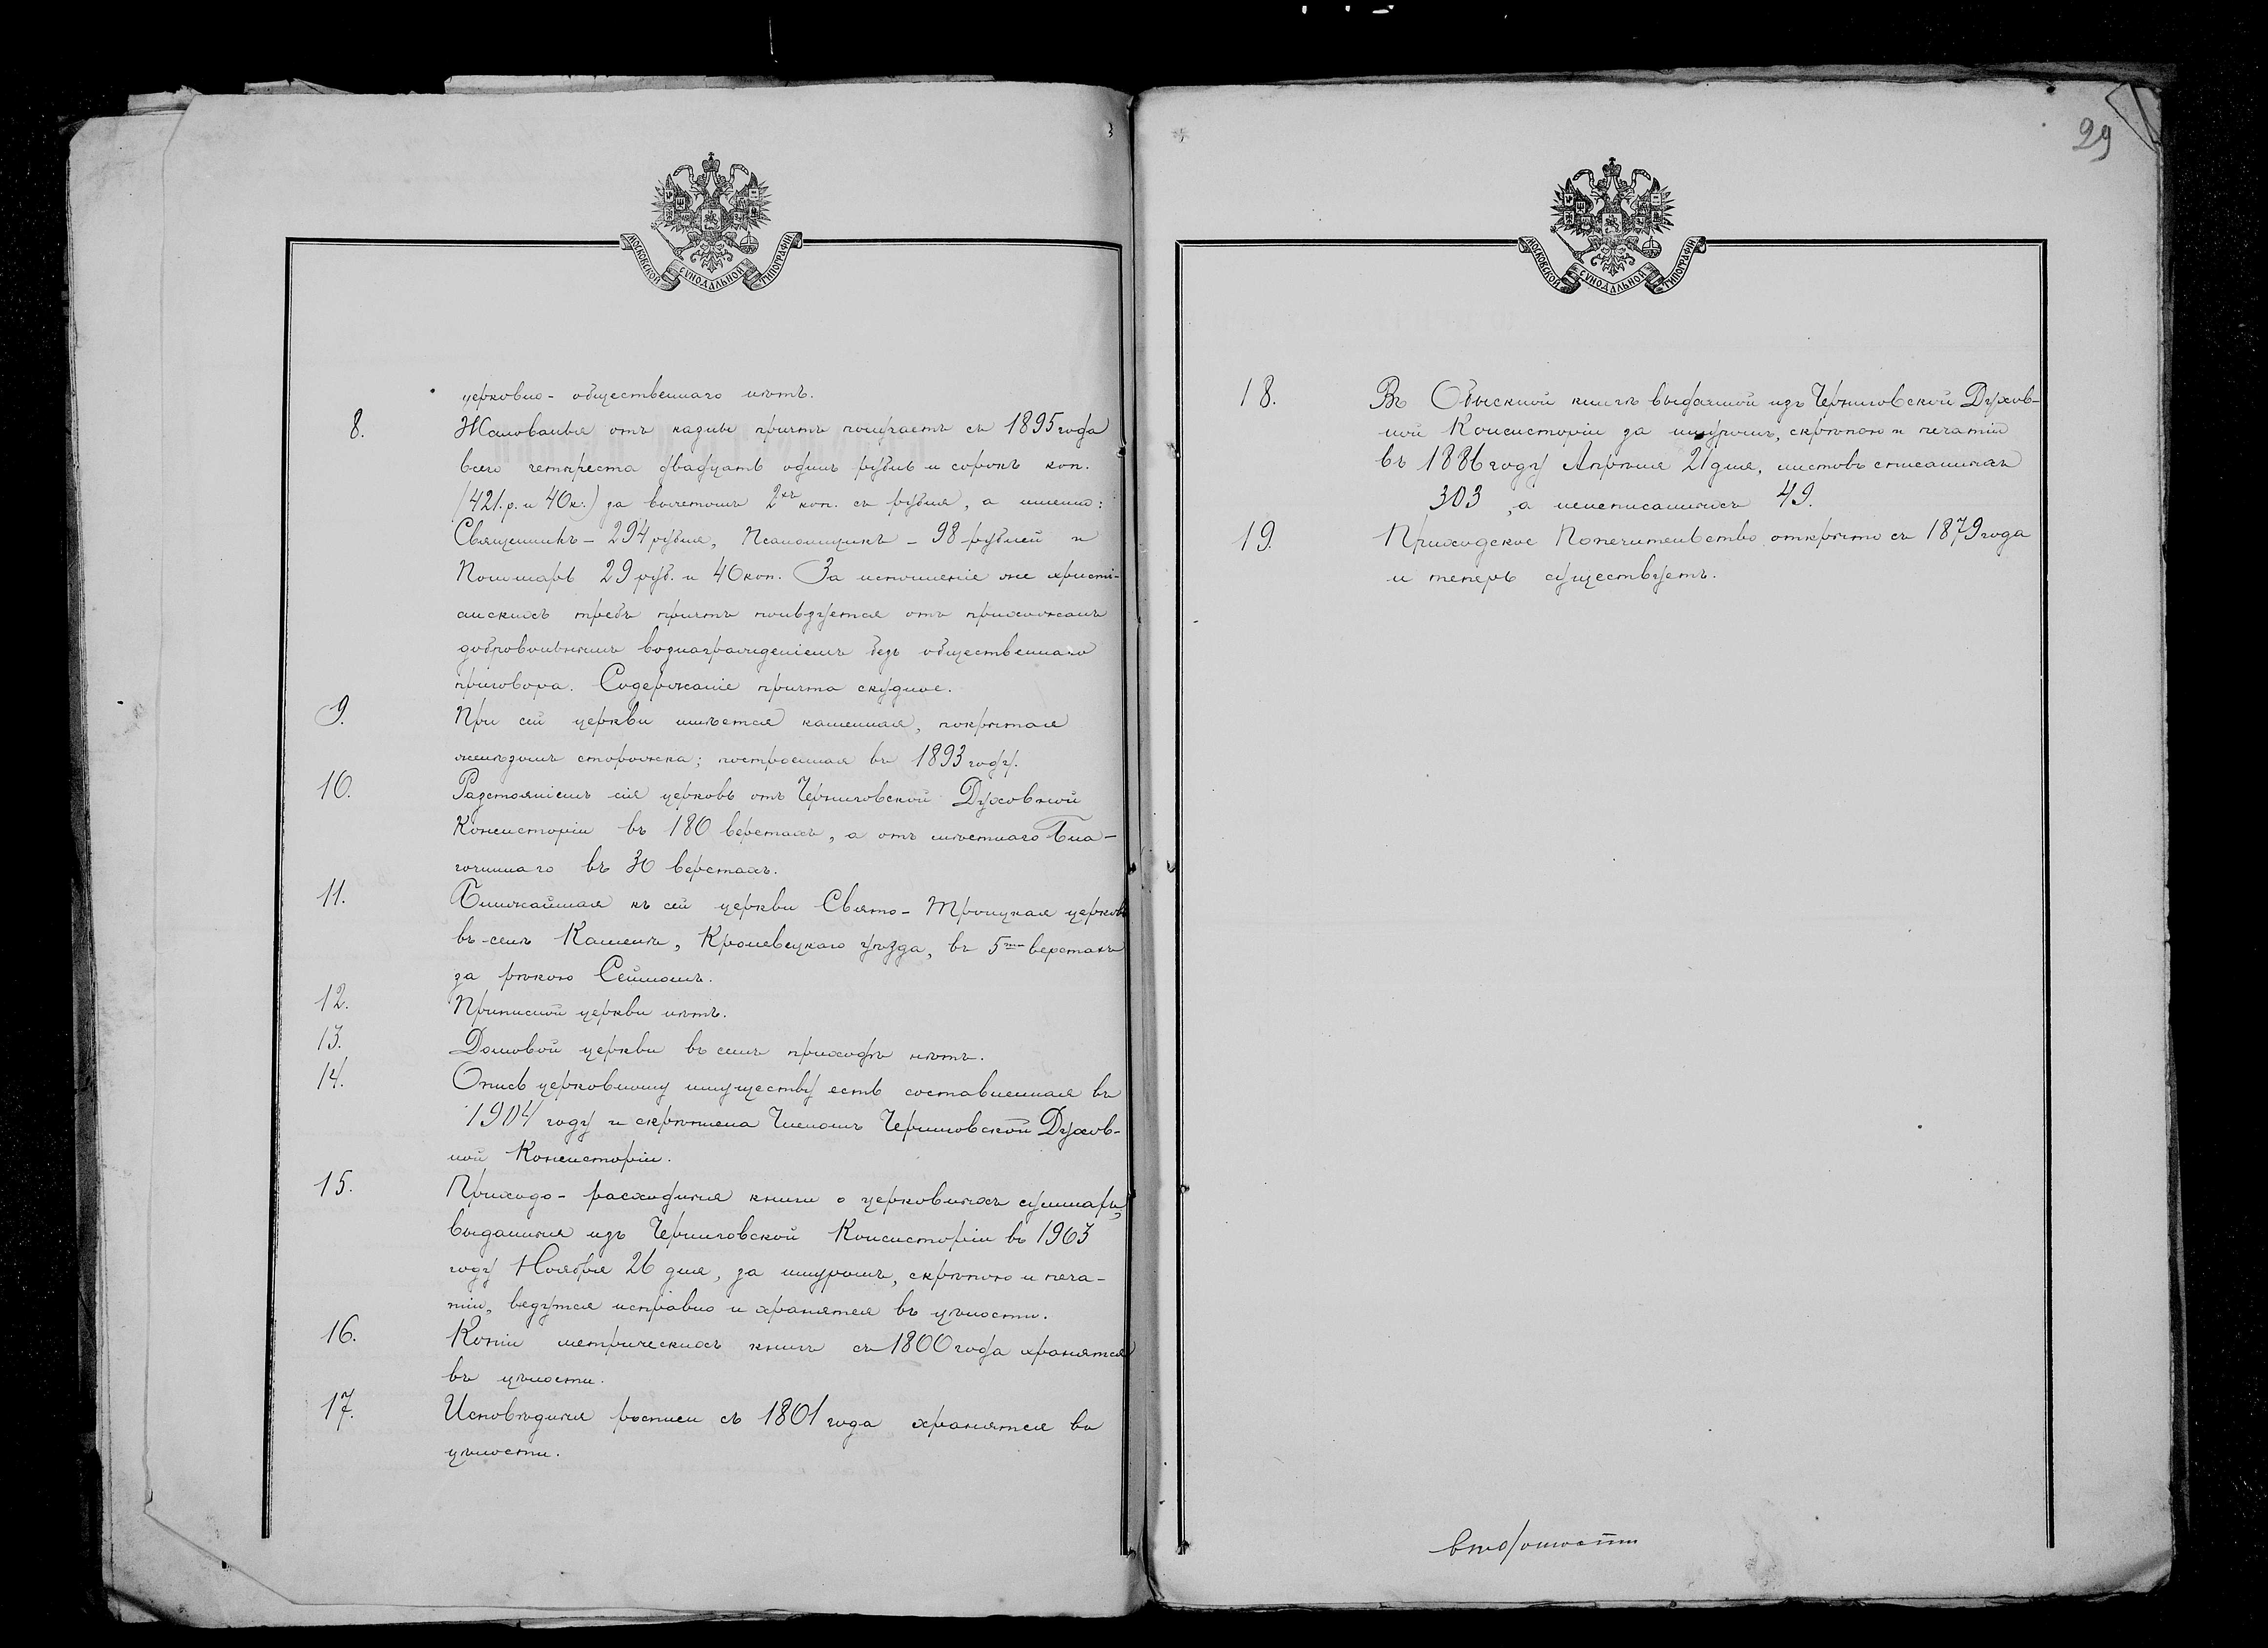 МОСКОВСКОЙ СѴНОДАЛЬНОЙ ТИПОГРАФІИ
церковно-общественнаго нѣтъ.
8. Жалованья отъ казны причтъ получаетъ съ 1895 года
всего четыреста двадцать одинъ рубль и сорокъ коп.
(421. р. и 40 к:) за вычетомъ 2хъ коп. съ рубля, а именно:
Священникъ - 294 рубля, Псаломщикъ - 98 рублей и
Пономарь 29 руб. и 40 коп. За исполненіе же христі-
анскихъ требъ причтъ пользуется отъ прихожанъ
добровольнымъ вознагражденіемъ безъ общественнаго
приговора. Содержаніе причта скудное.
9. При сей церкви имѣется каменная, покрытая
желѣзомъ сторожка; построенная въ 1893 году.
10. Разстояніемъ сія церковь отъ Черниговской Духовной
Консисторіи въ 180 верстахъ, а отъ мѣстнаго Бла-
гочиннаго въ 30 верстахъ.
11. Ближайшая къ сей церкви Свято-Троицкая церковь
въ селѣ Каменѣ, Кролевецкаго уѣзда, въ 5ти верстахъ
за рѣкою Сеймомъ.
12. Приписной церкви нѣтъ.
13. Домовой церкви въ семъ приходѣ нѣтъ.
14. Опись церковному имуществу есть составленная въ
1904 году и скрѣплена Членомъ Черниговской Духов-
ной Консисторіи.
15. Приходо-расходныя книги о церковныхъ суммахъ,
выданныя изъ Черниговской Консисторіи въ 1903
году Ноября 26 дня, за шнуромъ, скрѣпою и печа-
тію, ведутся исправно и хранятся въ цѣлости.
16. Копіи метрическихъ книгъ съ 1800 года хранятся
въ цѣлости.
17. Исповѣдныя росписи съ 1801 года хранятся въ
цѣлости.
29
МОСКОВСКОЙ СѴНОДАЛЬНОЙ ТИПОГРАФІИ
18. Въ Обыскной книгѣ выданной изъ Черниговской Духов-
ной Консисторіи за шнуромъ, скрѣпою и печатію
въ 1886 году Апрѣля 21 дня, листовъ списанныхъ
303, а неписанныхъ 49.
19. Приходское Попечительство открыто съ 1879 года
и теперь существуетъ.